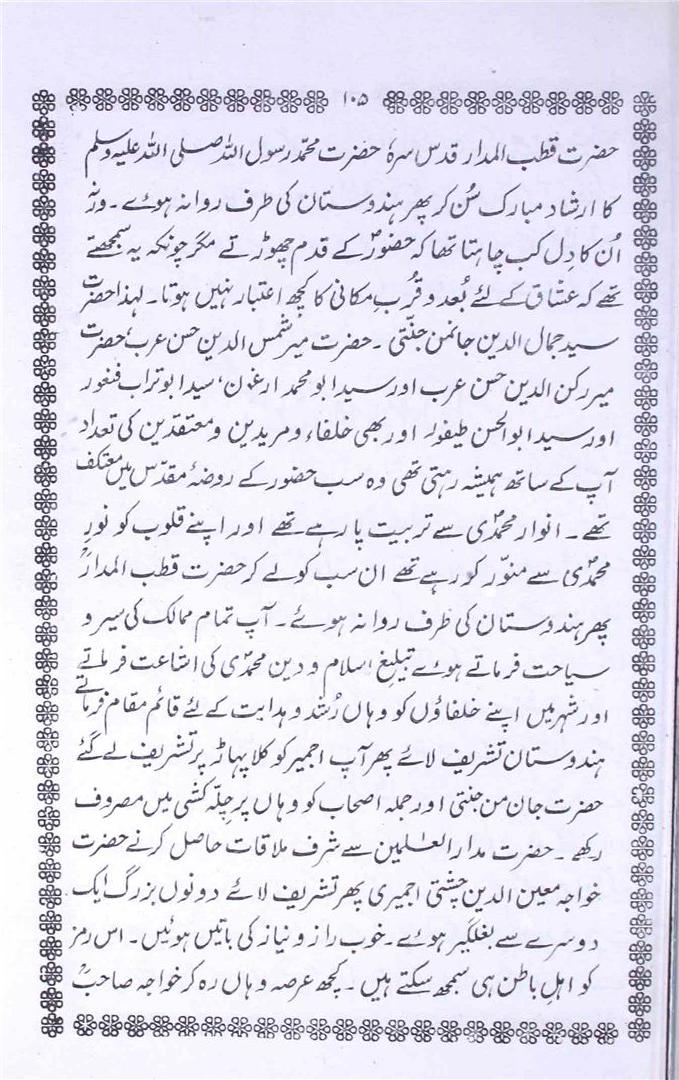 ۱۰۵
حضرت قطب المدار قدس سرہٗ حضرت محمّد رسول اللہ صلی اللہ علیہ وسلم
کا ارشاد مبارک سُن کر پھر ہندوستان کی طرف روانہ ہوئے ۔ ورنہ
اُن کا دِل کب چاہتا تھا کہ حضورؐ کے قدم چھوڑتے مگر چونکہ یہ سمجھتے
تھے کہ عشّاق کے لئے بُعد و قُربِ مکانی کا کچھ اعتبار نہیں ہوتا۔ لہذا حضرت
سید جمال الدین جانمن جنّتی ۔ حضرت میر شمس الدین حسن عرب، حضرت
میر رکن الدین حسن عرب اور سید ابو محمد ارغون، سید ابو تراب فنغور
اور سید ابو الحسن طیفور اور بھی خلفاء و مریدین و معتقدین کی تعداد
آپ کے ساتھ ہمیشہ رہتی تھی وہ سب حضور کے روضۂ مقدّس میں معتکف
تھے ۔ انوار محمّدی سے تربیت پا رہے تھے اور اپنے قلوب کو نورِ
محمّدیؐ سے منوّر کو رہے تھے ان سب کو لے کر حضرت قطب المدارؒ
پھر ہندوستان کی طرف روانہ ہوئے ۔ آپ تمام ممالک کی سیر و
سیاحت فرماتے ہوئے تبلیغِ اسلام و دین محمدؐی کی اشاعت فرماتے
اور شہر میں اپنے خلفاؤں کو وہاں رُشد و ہدایت کے لئے قائم مقام فرماتے
ہندوستان تشریف لائے پھر آپ اجمیر کو کلا پہاڑ پر تشریف لے گئے
حضرت جان من جنتی اور جملہ اصحاب کو وہاں پر چلّہ کشی میں مصروف
رکھے ۔ حضرت مدار العٰلمین سے شرف ملاقات حاصل کرنے حضرت
خواجہ معین الدین چشتی اجمیری پھر تشریف لائے دونوں بزرگ ایک
دوسرے سے بغلگیر ہوئے ۔ خوب راز و نیاز کی باتیں ہوئیں ۔ اس رمز
کو اہلِ باطن ہی سمجھ سکتے ہیں ۔ کچھ عرصہ وہاں رہ کر خواجہ صاحبؒ